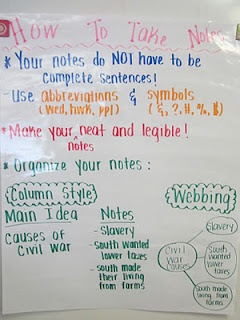 How To Take Notes
* Your notes do NOT have to be
complete sentences!
- Use abbreviations & symbols
(Wed, hwk, ppl) (&, ?, #, %, $)
* Make your notes neat and legible!
* Organize your notes:
Column Style
Main Idea Notes
Causes of
Civil War
- Slavery
- South wanted
lower taxes
- South made
their living
from farms
Webbing
Civil
War
Causes
Slavery
South
wanted
lower
taxes
South made
living from
farms